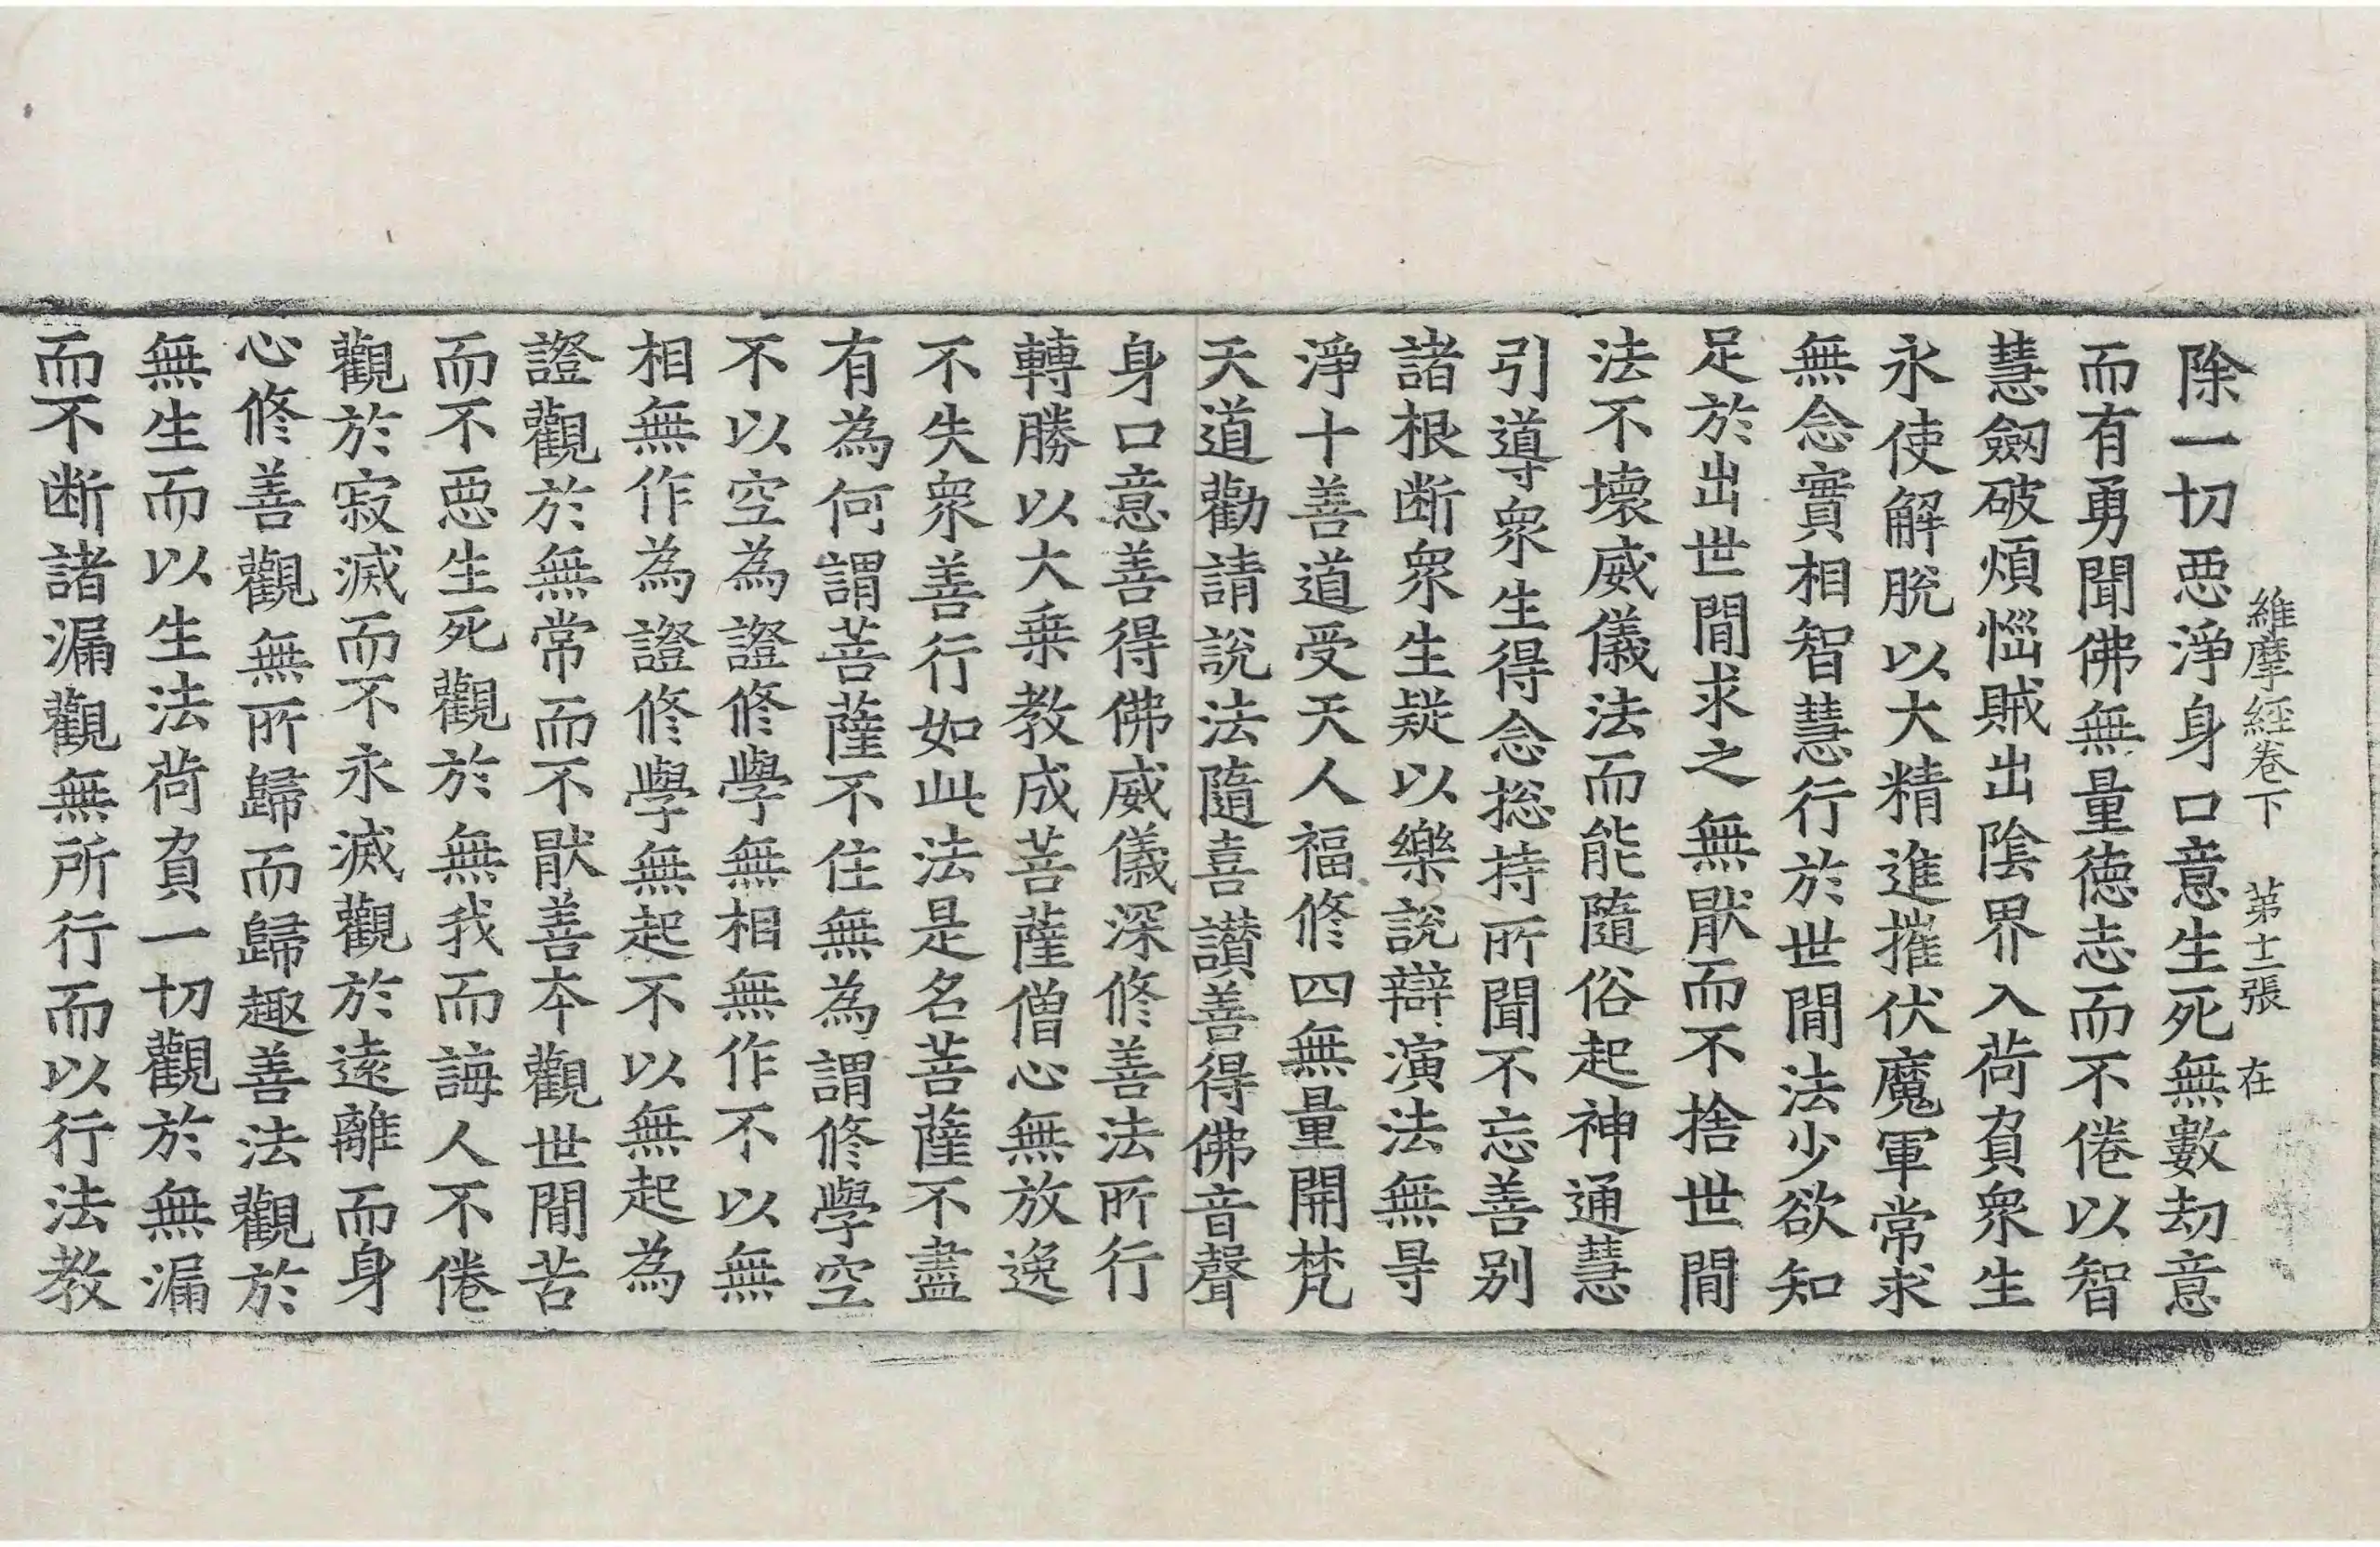 維摩經卷下 第十二張 在
除一切惡淨身口意生死無數劫意
而有勇聞佛無量德志而不倦以智
慧劒破煩惱賊出陰界入荷負衆生
永使解脫以大精進摧伏魔軍常求
無念實相智慧行於世閒法少欲知
足於出世閒求之無猒而不捨世閒
法不壞威儀法而能隨俗起神通慧
引導衆生得念捴持所聞不忘善別
諸根断衆生疑以樂說辯演法無㝵
淨十善道受天人福修四無量開梵
天道勸請說法隨喜讃善得佛音聲
身口意善得佛威儀深修善法所行
轉勝以大乗教成菩薩僧心無放逸
不失衆善行如此法是名菩薩不盡
有為何謂菩薩不住無為謂修學空
不以空為證修學無相無作不以無
相無作為證修學無起不以無起為
證觀於無常而不猒善本觀世閒苦
而不惡生死觀於無我而誨人不倦
觀於寂滅而不永滅觀於遠離而身
心修善觀無所歸而歸趣善法觀於
無生而以生法荷負一切觀於無漏
而不断諸漏觀無所行而以行法教